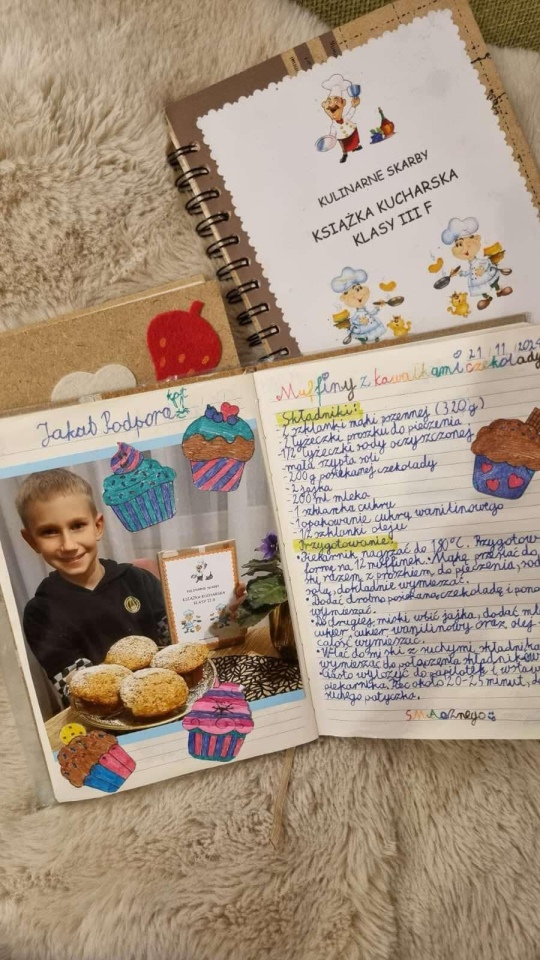 KULINARNE SKARBY
KSIĄŻKA KUCHARSKA
KLASY III F
Jakub Podpora
KSIĄŻKA KUCHARSKA
21 11 2024
Muffiny z kawałkami czekolady
Składniki:
szklanki mąki pszennej (320g)
łyżeczki proszku do pieczenia
1/2 łyżeczki sody oczyszczonej
mała szczypta soli
200 g posiekanej czekolady
2 jajka
200 ml mleka
1 szklanka cukru
1 opakowanie cukru wanilinowego
1/2 szklanki oleju
Przygotowanie:
Piekarnik nagrzać do 180°C. Przygotow
formę na 12 muffinek. Mąkę przesiać do
razem z proszkiem do pieczenia, sod
solą, dokładnie wymieszać.
Dodać drobno posiekaną czekoladę i pono
wymieszać.
Do drugiej miski wbić jajka, dodać ml
cukier, cukier wanilinowy oraz olej
całość wymieszać.
Wlać do miski z suchymi składnika
wymieszać do połączenia składników
Ciasto wyłożyć do papilotek i wstawi
piekarnika. Piec około 20-25 minut, do
suchego patyczka.
Smacznego